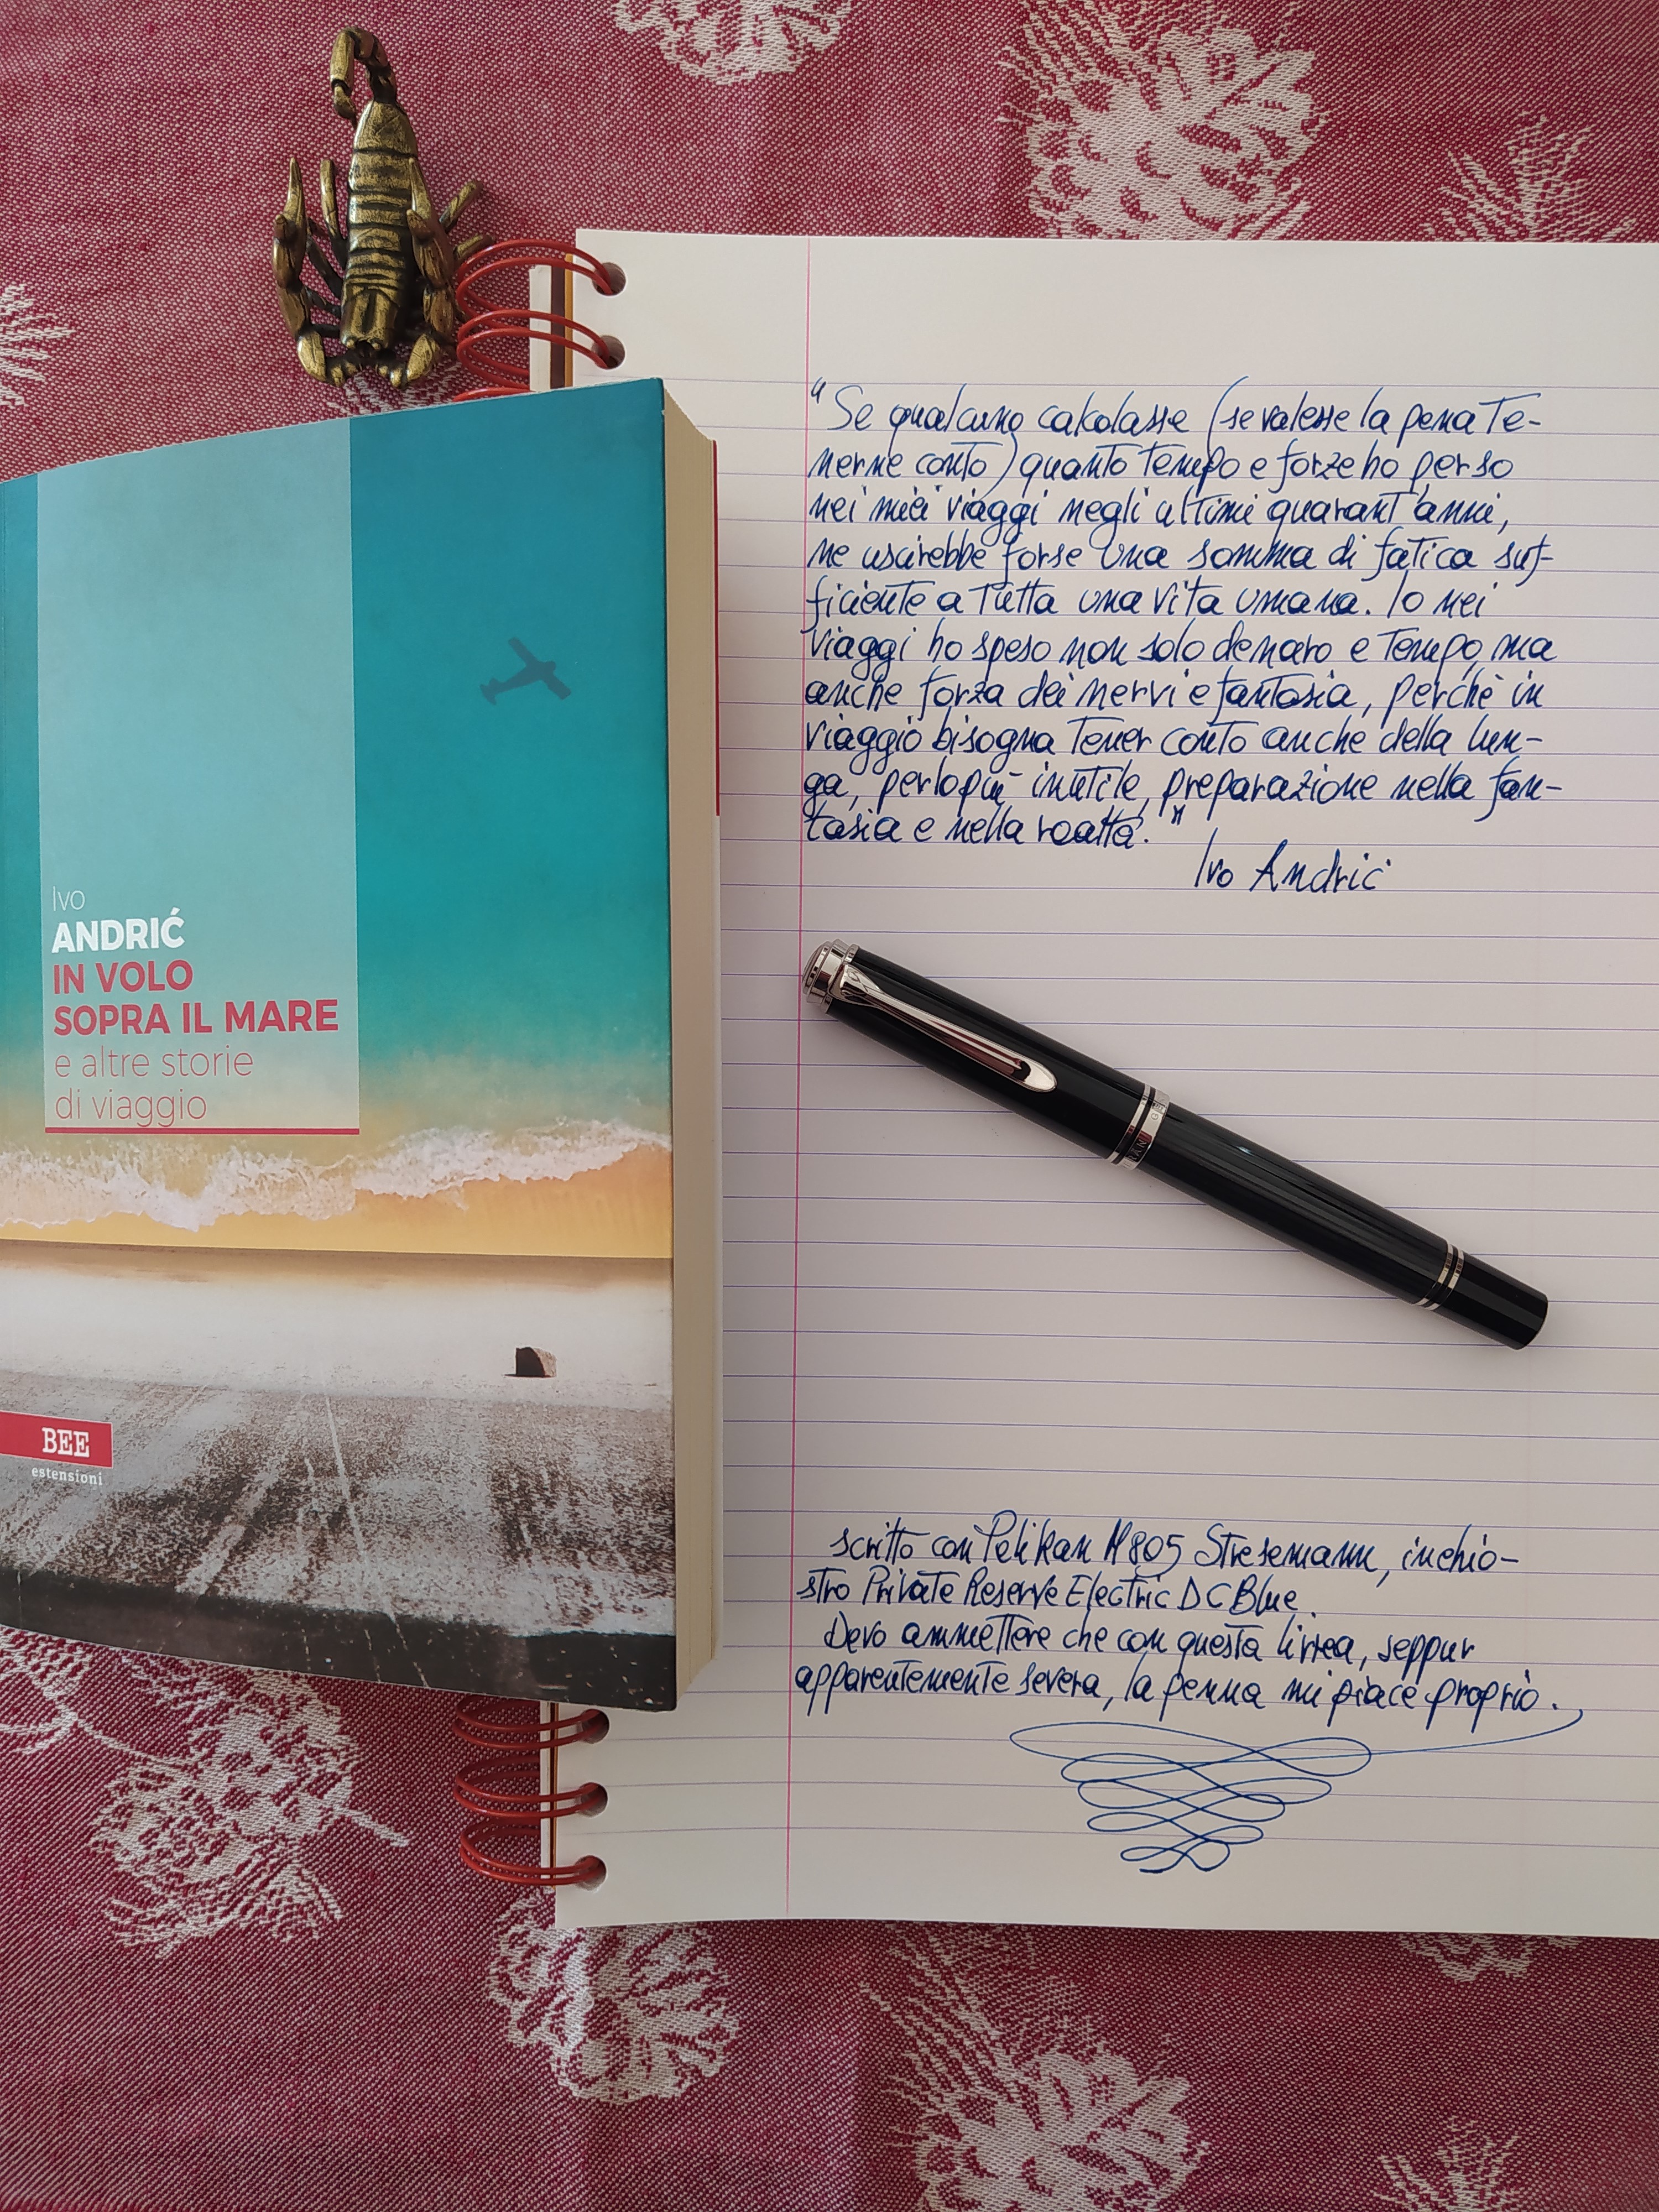 Ivo
ANDRIĆ
IN VOLO
SOPRA IL MARE
e altre storie
di viaggio
BEE
estensioni
"Se qualcuno calcolasse (se valesse la pena te-
nerne conto) quanto tempo e forze ho perso
nei miei viaggi negli ultimi quarant'anni,
ne uscirebbe forse una somma di fatica suf-
ficiente a tutta una vita umana. Io nei
viaggi ho speso non solo denaro e tempo, ma
anche forza dei nervi e fantasia, perchè in
viaggio bisogna tener conto anche della lun-
ga, perlopiù inutile, preparazione nella fan-
tasia e nella realtà."
Ivo Andrić
scritto con Pelikan M805 Stresemann, inchio-
stro Private Reserve Electric DC Blue.
Devo ammettere che con questa livrea, seppur
apparentemente severa, la penna mi piace proprio.